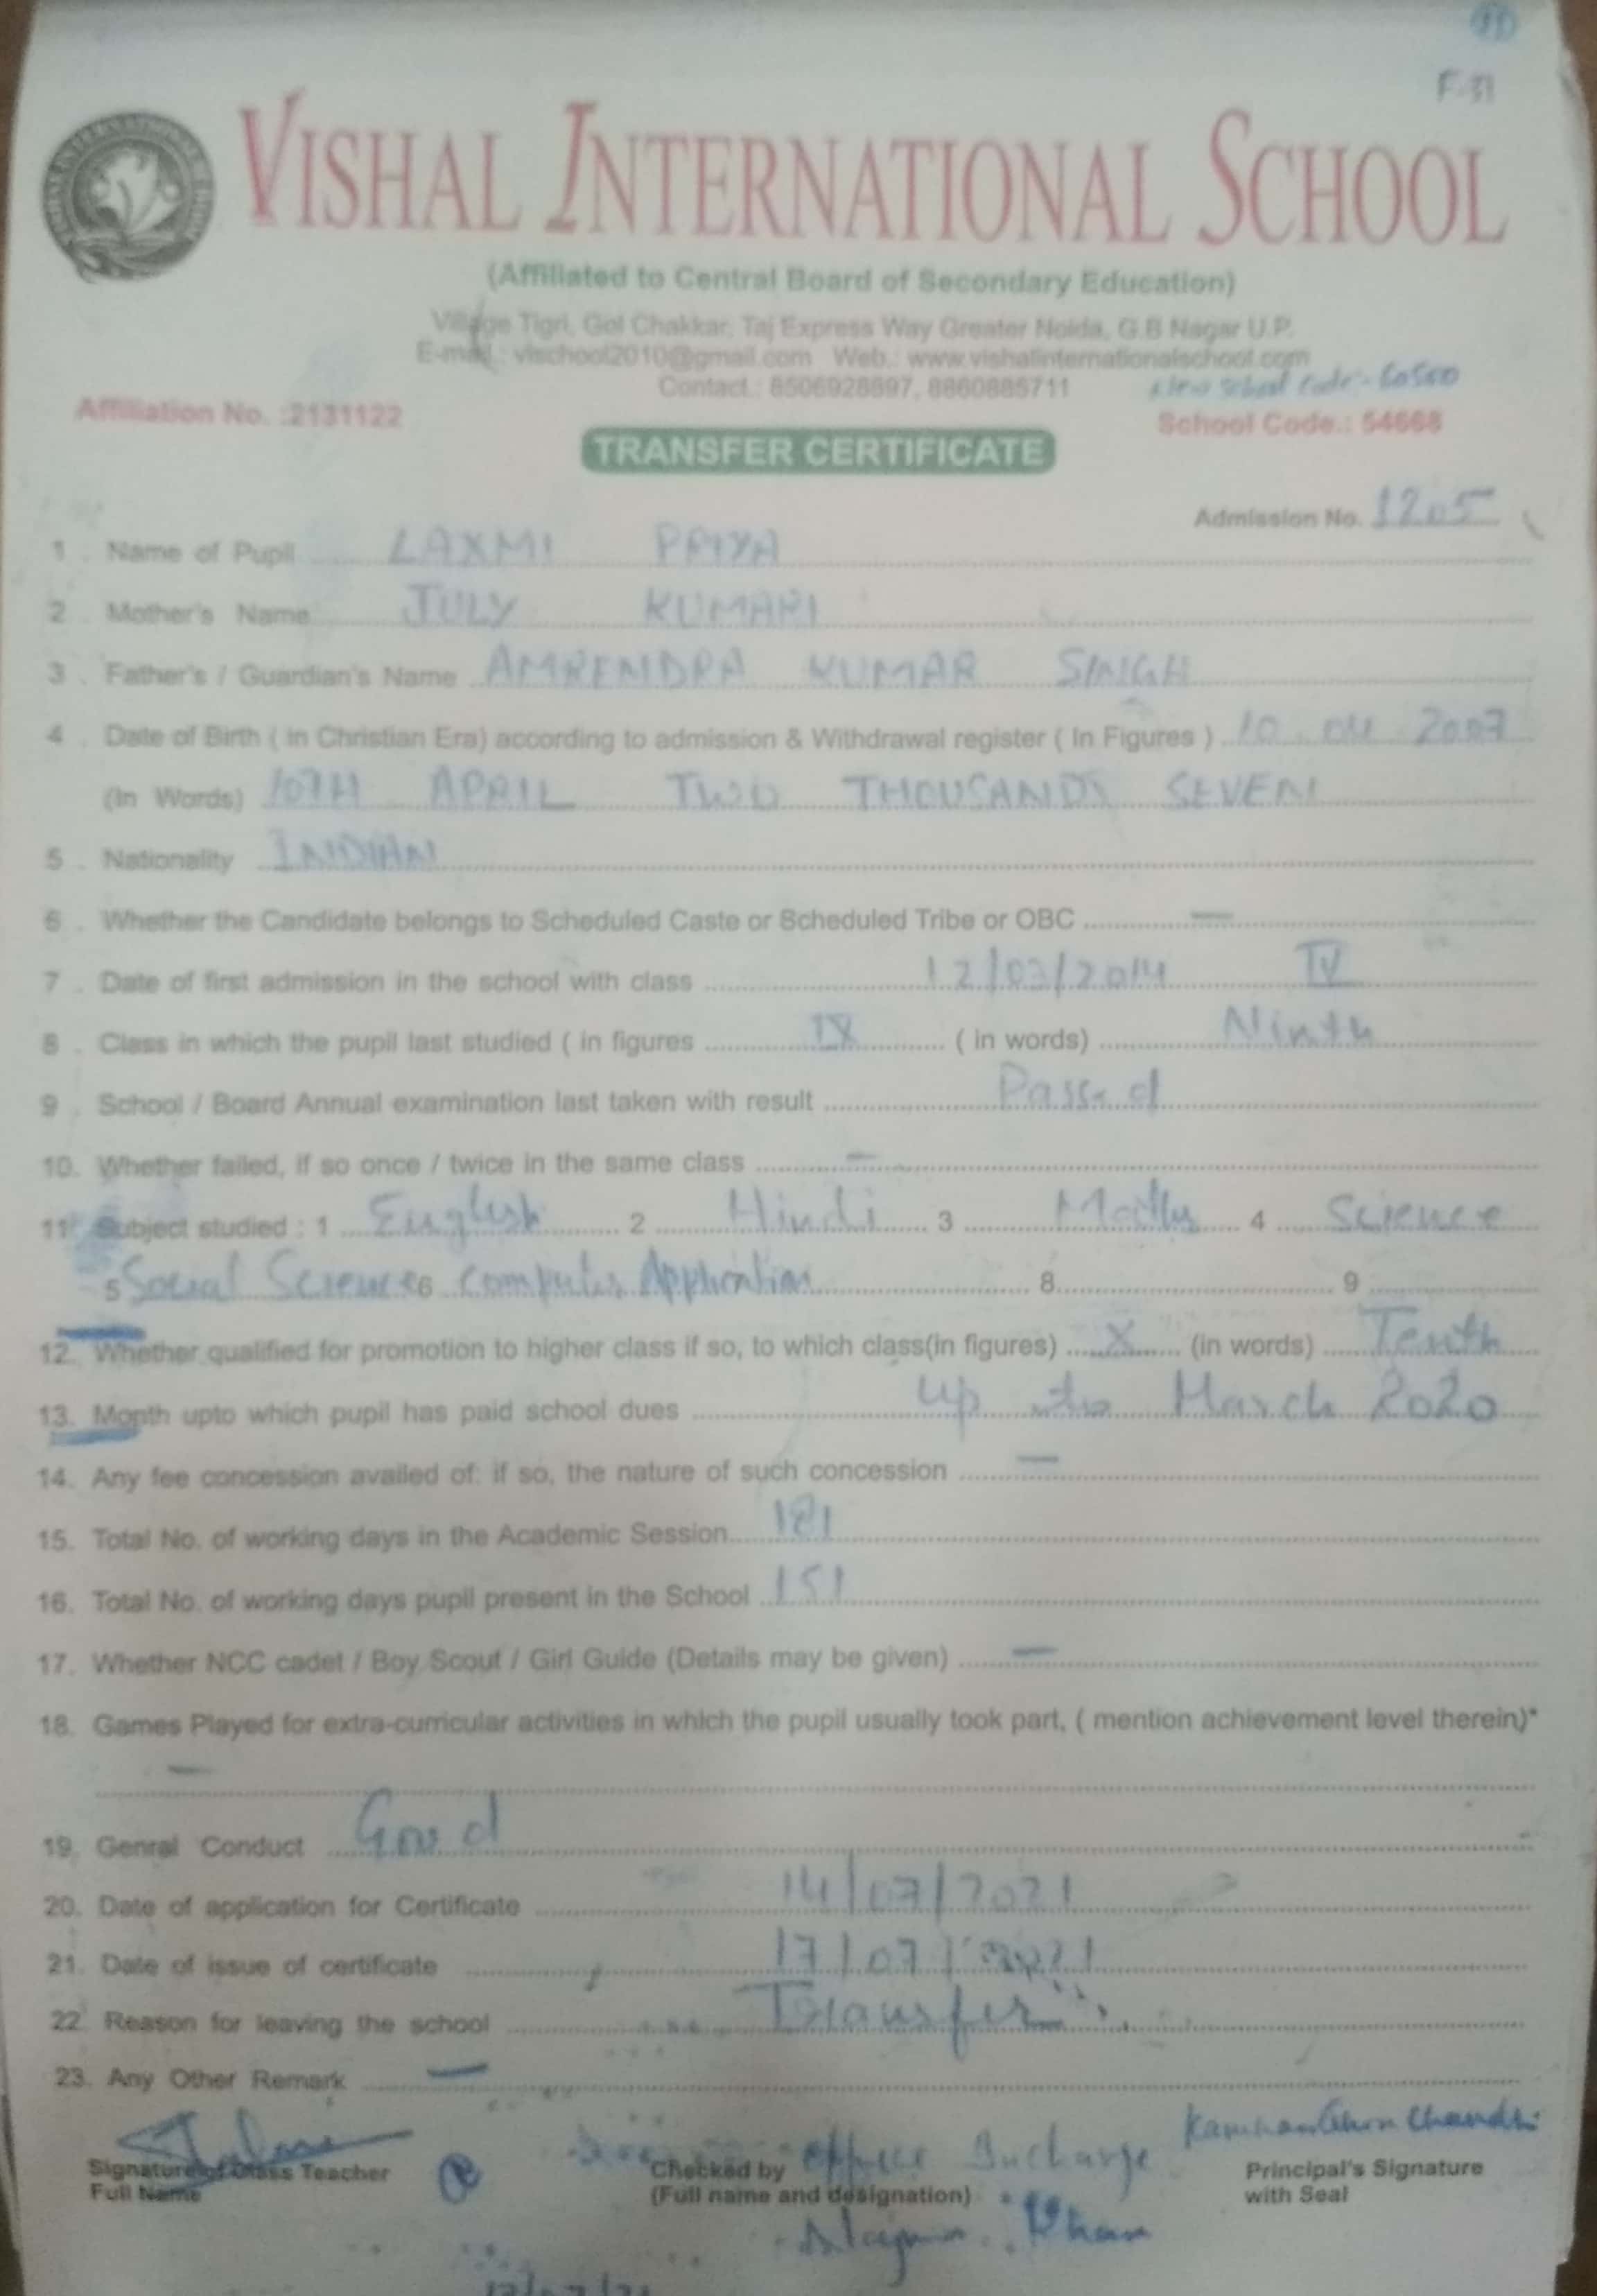 F-31
VISHAL INTERNATIONAL SCHOOL
(Affiliated to Central Board of Secondary Education)
Village Tigri, Gol Chakkar, Taj Express Way Greater Noida, G.B Nagar U.P.
E-mail : vischool2010@gmail.com Web.: www.vishalinternationalschool.com
Contact.: 8506928697, 8860885711
New School Code - 60500
Affiliation No. :2131122 School Code.: 54668
TRANSFER CERTIFICATE
Admission No. 1205
1 . Name of Pupil LAXMI PRIYA
2 . Mother's Name JULY KUMARI
3 . Father's / Guardian's Name AMRENDRA KUMAR SINGH
4 . Date of Birth ( in Christian Era) according to admission & Withdrawal register ( In Figures ) 10.04 2007
(In Words) 10TH APRIL TWO THOUSANDS SEVEN
5 . Nationality INDIAN
6 . Whether the Candidate belongs to Scheduled Caste or Scheduled Tribe or OBC —
7 . Date of first admission in the school with class 12/03/2014 IV
8 . Class in which the pupil last studied ( in figures IX ( in words) Ninth
9 . School / Board Annual examination last taken with result Passed
10. Whether failed, if so once / twice in the same class —
11 Subject studied : 1 English 2 Hindi 3 Maths 4 Science
5 Social Science 6 Computer Application 8 9
12. Whether qualified for promotion to higher class if so, to which class(in figures) X (in words) Tenth
13. Month upto which pupil has paid school dues up to March 2020
14. Any fee concession availed of: if so, the nature of such concession —
15. Total No. of working days in the Academic Session 181
16. Total No. of working days pupil present in the School 151
17. Whether NCC cadet / Boy Scout / Girl Guide (Details may be given) —
18. Games Played for extra-curricular activities in which the pupil usually took part, ( mention achievement level therein)*
—
19. Genral Conduct Good
20. Date of application for Certificate 14/07/2021
21. Date of issue of certificate 17/07/2021
22. Reason for leaving the school Transfer
23. Any Other Remark —
Signature of Class Teacher Checked by Office Incharge Principal's Signature
Full Name (Full name and designation) with Seal
Khan